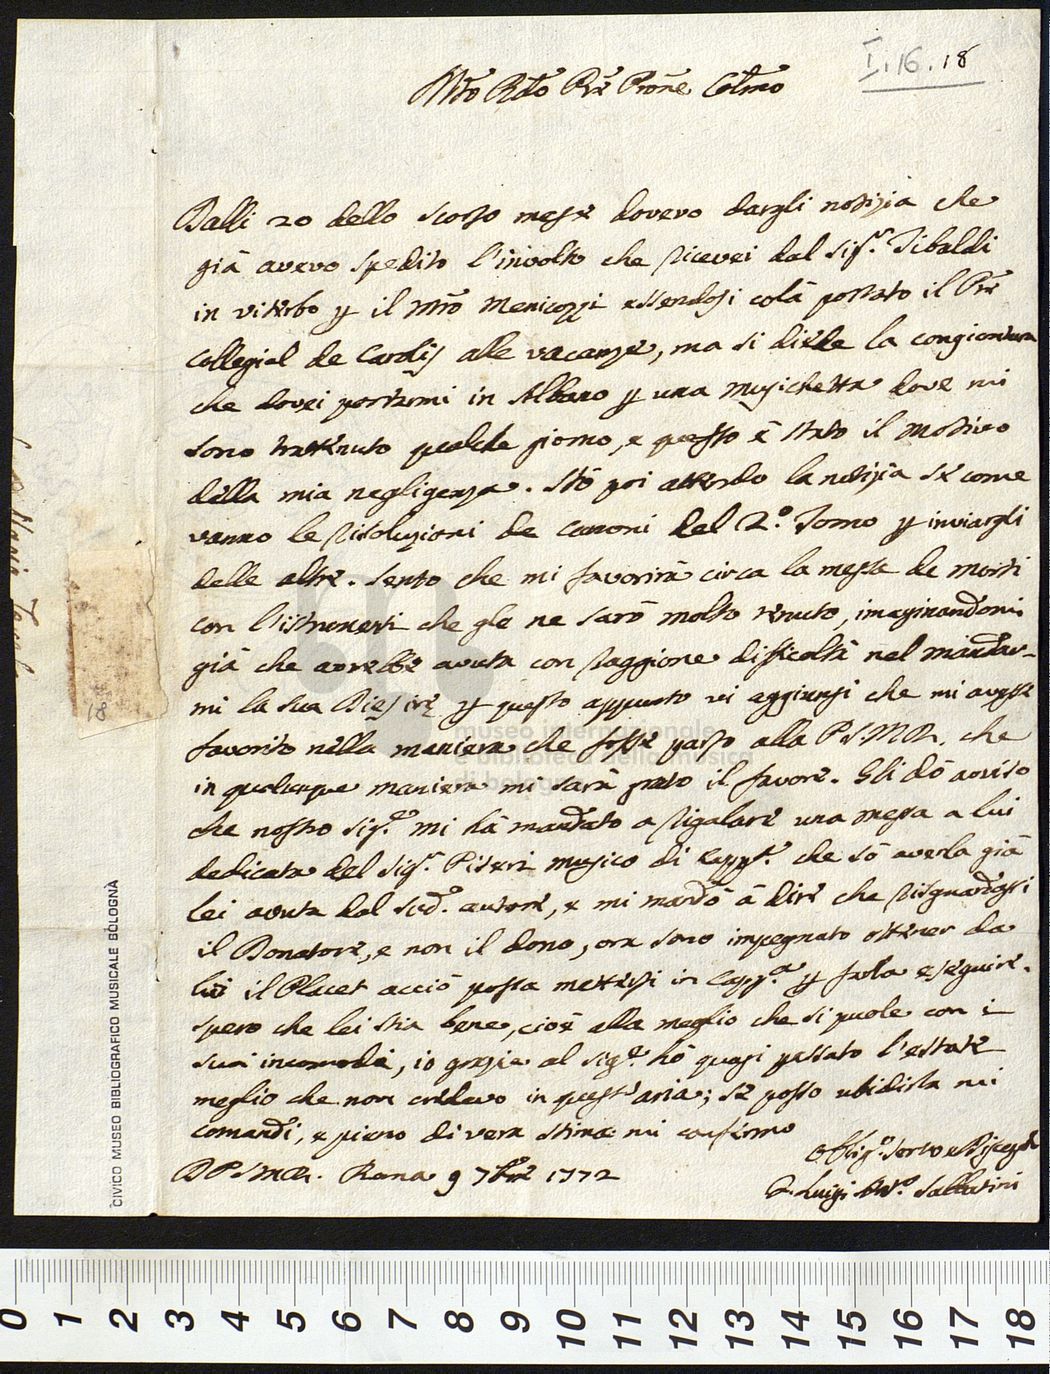 I.16.18
Mto Rdo Pre Prone Colmo
Dalli 20 dello scorso mese dovevo dargli notizia che
già avevo spedito l'involto che ricevei dal Sigr. Tibaldi
in viterbo p il Mro Menicozzi essendosi colà portato il Pre
Collegial de Cardis alle vacanze, ma si diede la congiontura
che dovei portarmi in Albano p una musichetta dove mi
sono trattenuto qualche giorno, e questo è stato il motivo
della mia negligenza. Stò poi attendo la notizia se come
vanno le risoluzioni de canoni del 2.º Tomo p inviargli
delle altre. Sento che mi favorirà circa la messa de morti
con l'istromenti che gle ne sarò molto tenuto, imaginandomi
già che avrebbe avuta con raggione difficoltà nel mandar-
mi la sua Dies ire p questo appunto vi aggiunsi che mi avesse
favorito nella maniera che fosse parso alla P.S.M.R. che
in qualunque maniera mi sarà grato il favore. Gli dò aviso
che nostro Sigre. mi hà mandato a rigalare una messa a lui
dedicata del Sigr. Piseri musico di Cappa. che sò averla già
lei avuta dal sudo. autore, e mi mandò à dire che risguardassi
il Donatore, e non il dono, ora sono impegnato ottener da
lui il Placet acciò possa mettersi in Cappa. p farla eseguire.
spero che lei stia bene, cioè alla meglio che si puole con i
suoi incomodi, io grazie al Sigre. hò quasi passato l'estate
meglio che non credevo in quest'aria; se posso ubidirla mi
comandi, e pieno di vera stima mi confermo
D P.S.M.R. Roma 9 7bre 1772
Obligo. Servo e
F. Luigi Anto. Sabbatini
18
CIVICO MUSEO BIBLIOGRAFICO MUSICALE BOLOGNA
museo internazionale
e biblioteca della musica
di bologna
0 1 2 3 4 5 6 7 8 9 10 11 12 13 14 15 16 17 18